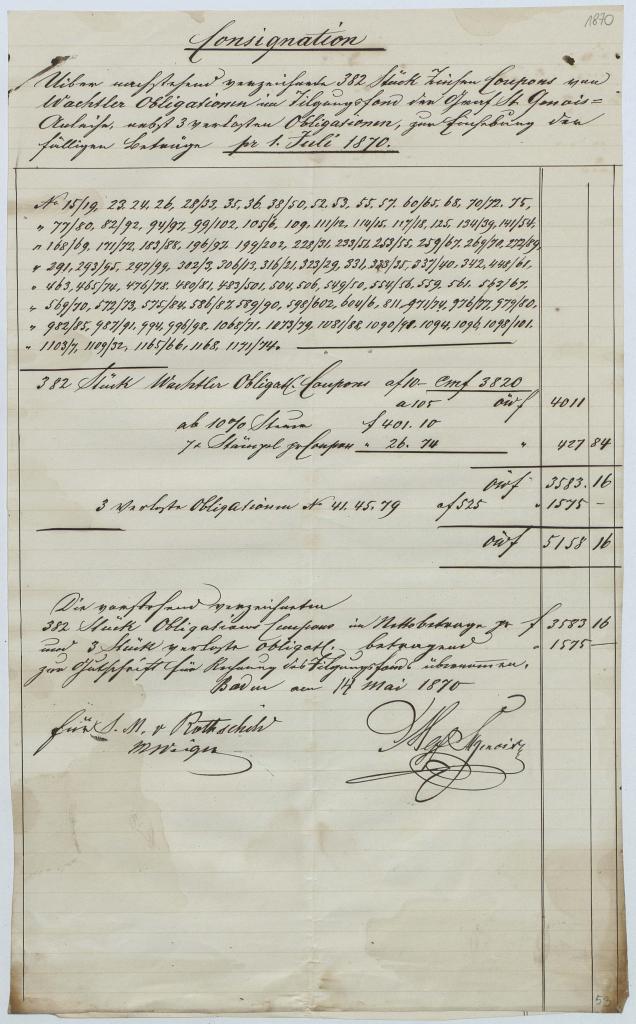 1870
Consignation
Uiber nachstehend verzeichnete 382 Stück Zinsen Coupons von
Wachtler Obligationen im Tilgungsfond der Graf St. Genois=
Anleihe, nebst 3 verlosten Obligationen, zur Einhebung der
fälligen Beträge pr 1. Juli 1870.
No 15/19, 23. 24. 26, 28/33, 35, 36, 38/50, 52, 53, 55, 57, 60/65, 68, 70/72, 75,
" 77/80, 82/92, 94/97, 99/102, 105/6, 109, 111/12, 114/15, 117/18, 125, 134/39, 141/54,
" 168/69, 171/72, 183/88, 196/97, 199/202, 228/31, 233/51, 253/55, 259/67, 269/70, 272/89,
" 291, 293/95, 297/99, 302/3, 306/13, 316/21, 323/29, 331, 333/35, 337/40, 342, 448/61,
" 463, 465/74, 476/78, 480/81, 483/501, 504, 506, 549/50, 554/56, 559, 561, 563/67,
" 569/70, 572/73, 575/84, 586/87, 589/90, 598/602, 604/6, 811, 971/74, 976/77, 979/80,
" 982/85, 987/91, 994, 996/98, 1068/71, 1073/79, 1081/88, 1090/92, 1094, 1096, 1098/101,
" 1103/7, 1109/32, 1165/66, 1168, 1171/74.
382 Stück Wachtler Obligat. Coupons a f 10 – Cmf 3820
a 105 öwf 4011
ab 10% Steuer f 401. 10
7x Stämpel pr Coupon " 26. 74 " 427 84
öwf 3583. 16
3 verloste Obligationen No 41. 45. 79 a f 525 " 1575 –
öwf 5158 16
Die vorstehend verzeichneten
382 Stück Obligations Coupons im Nettobetrage pr f 3583 16
und 3 Stück verloste Obligatl. betragend " 1575 –
zur Gutschrift für Rechnung des Tilgungsfonds übernommen.
Baden am 14 Mai 1870
für S. M. v Rothschild
53